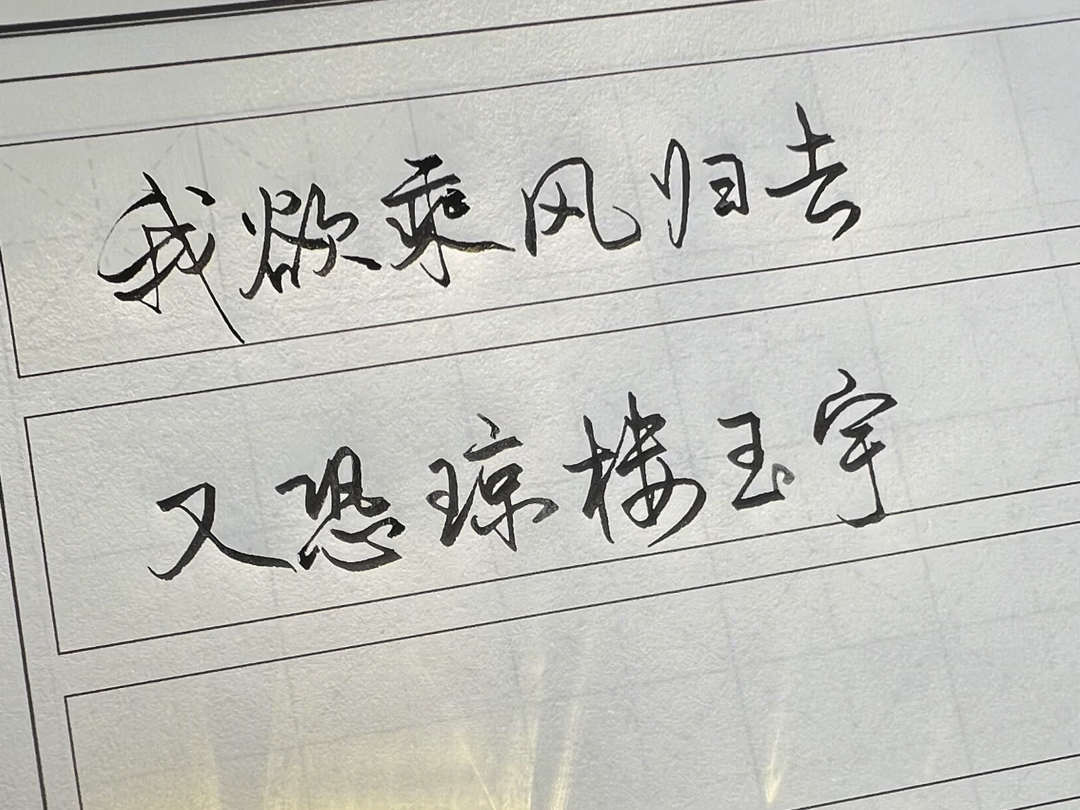 我欲乘风归去
又恐琼楼玉宇